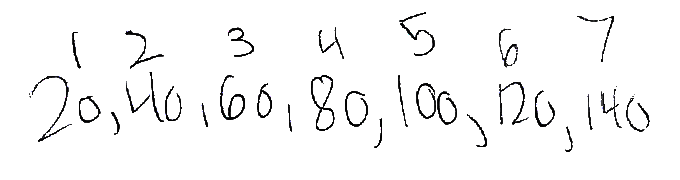 1 2 3 4 5 6 7
20, 40, 60, 80, 100, 120, 140